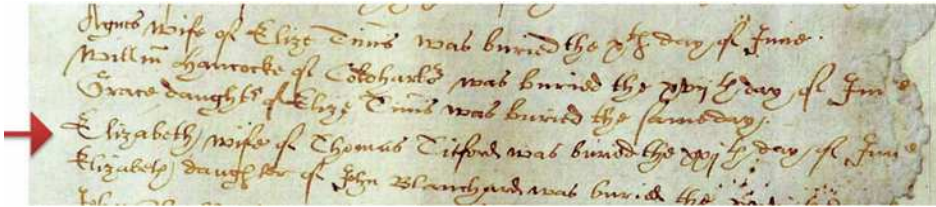 Agnes wife of Elize Tinis was buried the xth day of June
Willm Hancocke of was buried the xviijth day of June
Grace daughtr of Elize Tinis was buried the same day.
Elizabeth wife of Thomas Titford was buried the day of June
Elizabeth daughter of John Blanchard was buried the
John